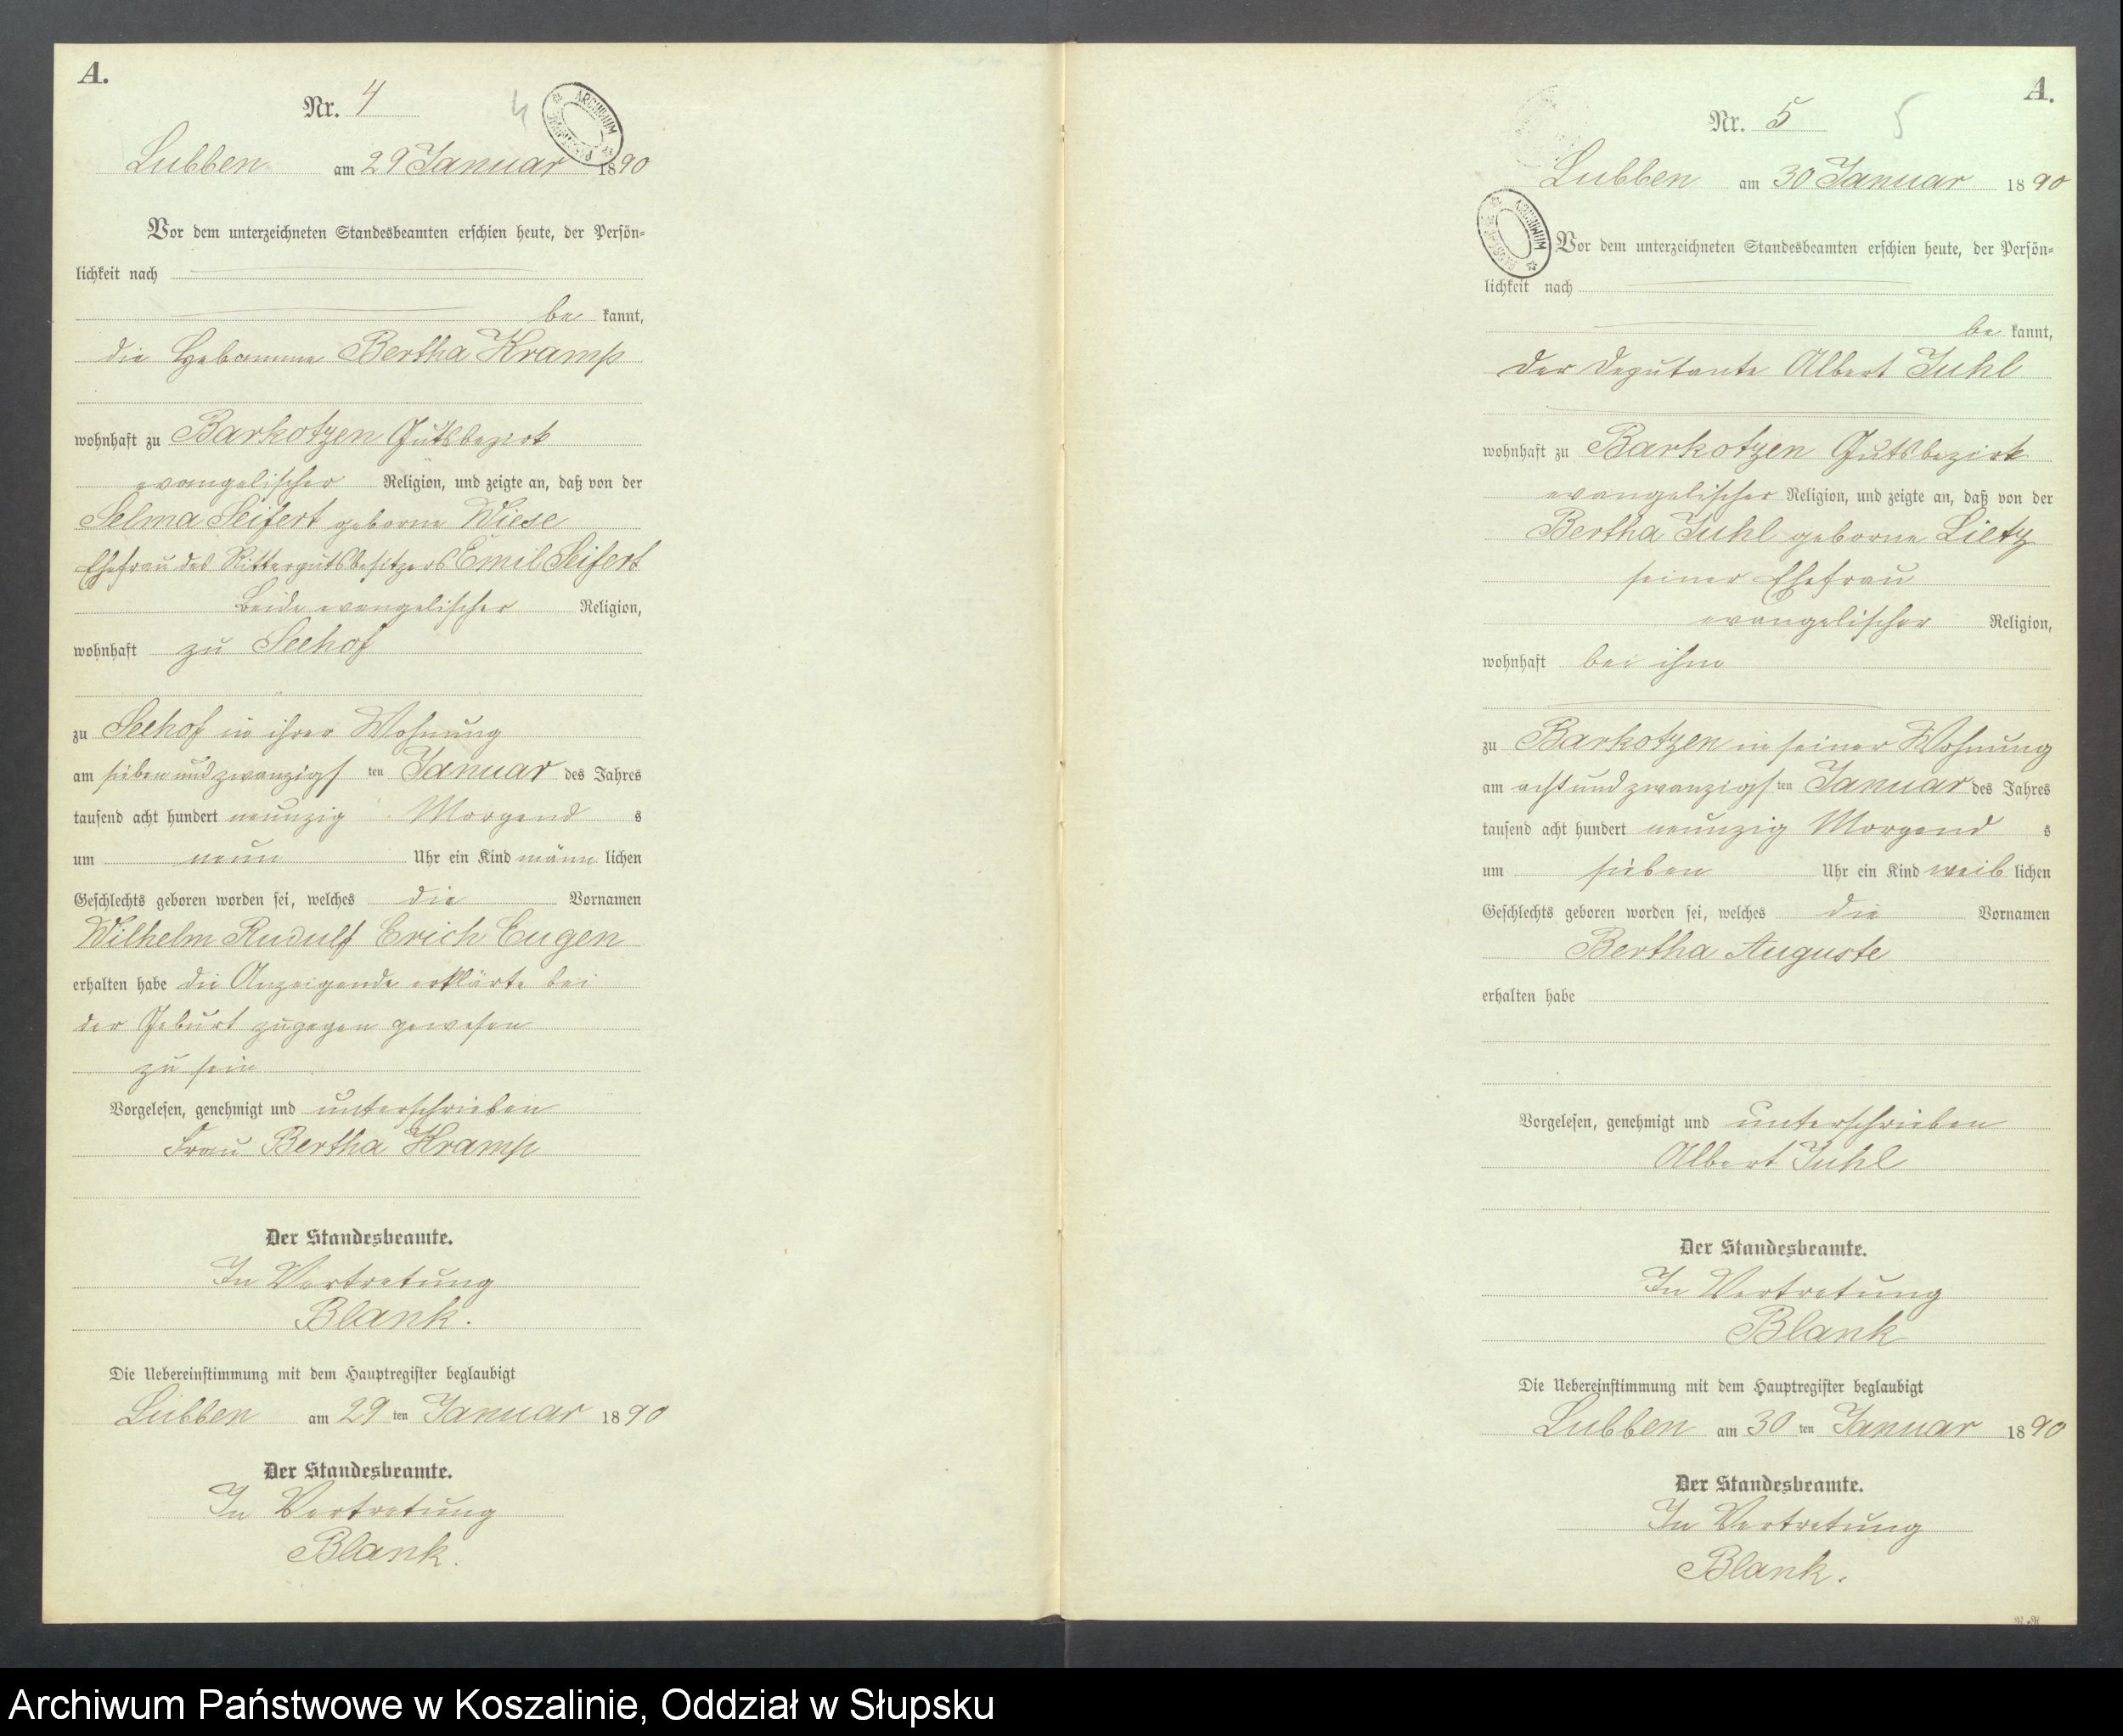 A.
Nr. 4
4
ARCHIWUM PAŃSTWOWE
Lubben am 29 Januar 1890
Vor dem unterzeichneten Standesbeamten erschien heute, der Persön-
lichkeit nach
be kannt,
die Hebamme Bertha Kramp
wohnhaft zu Barkotzen Gutsbezirk
evangelischer Religion, und zeigte an, daß von der
Selma Seifert geborne Wiese
Ehefrau des Rittergutsbesitzers Emil Seifert
beide evangelischer Religion,
wohnhaft zu Seehof
zu Seehof in ihrer Wohnung
am sieben und zwanzigs ten Januar des Jahres
tausend acht hundert neunzig Morgend s
um neun Uhr ein Kind männ lichen
Geschlechts geboren worden sei, welches die Vornamen
Wilhelm Rudulf Erich Eugen
erhalten habe die Anzeigende erklärte bei
der Geburt zugegen gewesen
zu sein
Vorgelesen, genehmigt und unterschrieben
Frau Bertha Kramp
Der Standesbeamte.
In Vertretung
Blank.
Die Uebereinstimmung mit dem Hauptregister beglaubigt
Lubben am 29 ten Januar 1890
Der Standesbeamte.
In Vertretung
Blank.
A.
Nr. 5
5
Lubben am 30 Januar 1890
ARCHIWUM PAŃSTWOWE
Vor dem unterzeichneten Standesbeamten erschien heute, der Persön-
lichkeit nach
be kannt,
der Deputante Albert Juhl
wohnhaft zu Barkotzen Gutsbezirk
evangelischer Religion, und zeigte an, daß von der
Bertha Juhl geborne Lietz
seiner Ehefrau
evangelischer Religion,
wohnhaft bei ihm
zu Barkotzen in seiner Wohnung
am acht und zwanzigs ten Januar des Jahres
tausend acht hundert neunzig Morgend s
um sieben Uhr ein Kind weib lichen
Geschlechts geboren worden sei, welches die Vornamen
Bertha Auguste
erhalten habe
Vorgelesen, genehmigt und unterschrieben
Albert Juhl
Der Standesbeamte.
In Vertretung
Blank
Die Uebereinstimmung mit dem Hauptregister beglaubigt
Lubben am 30 ten Januar 1890
Der Standesbeamte.
In Vertretung
Blank.
Archiwum Państwowe w Koszalinie, Oddział w Słupsku